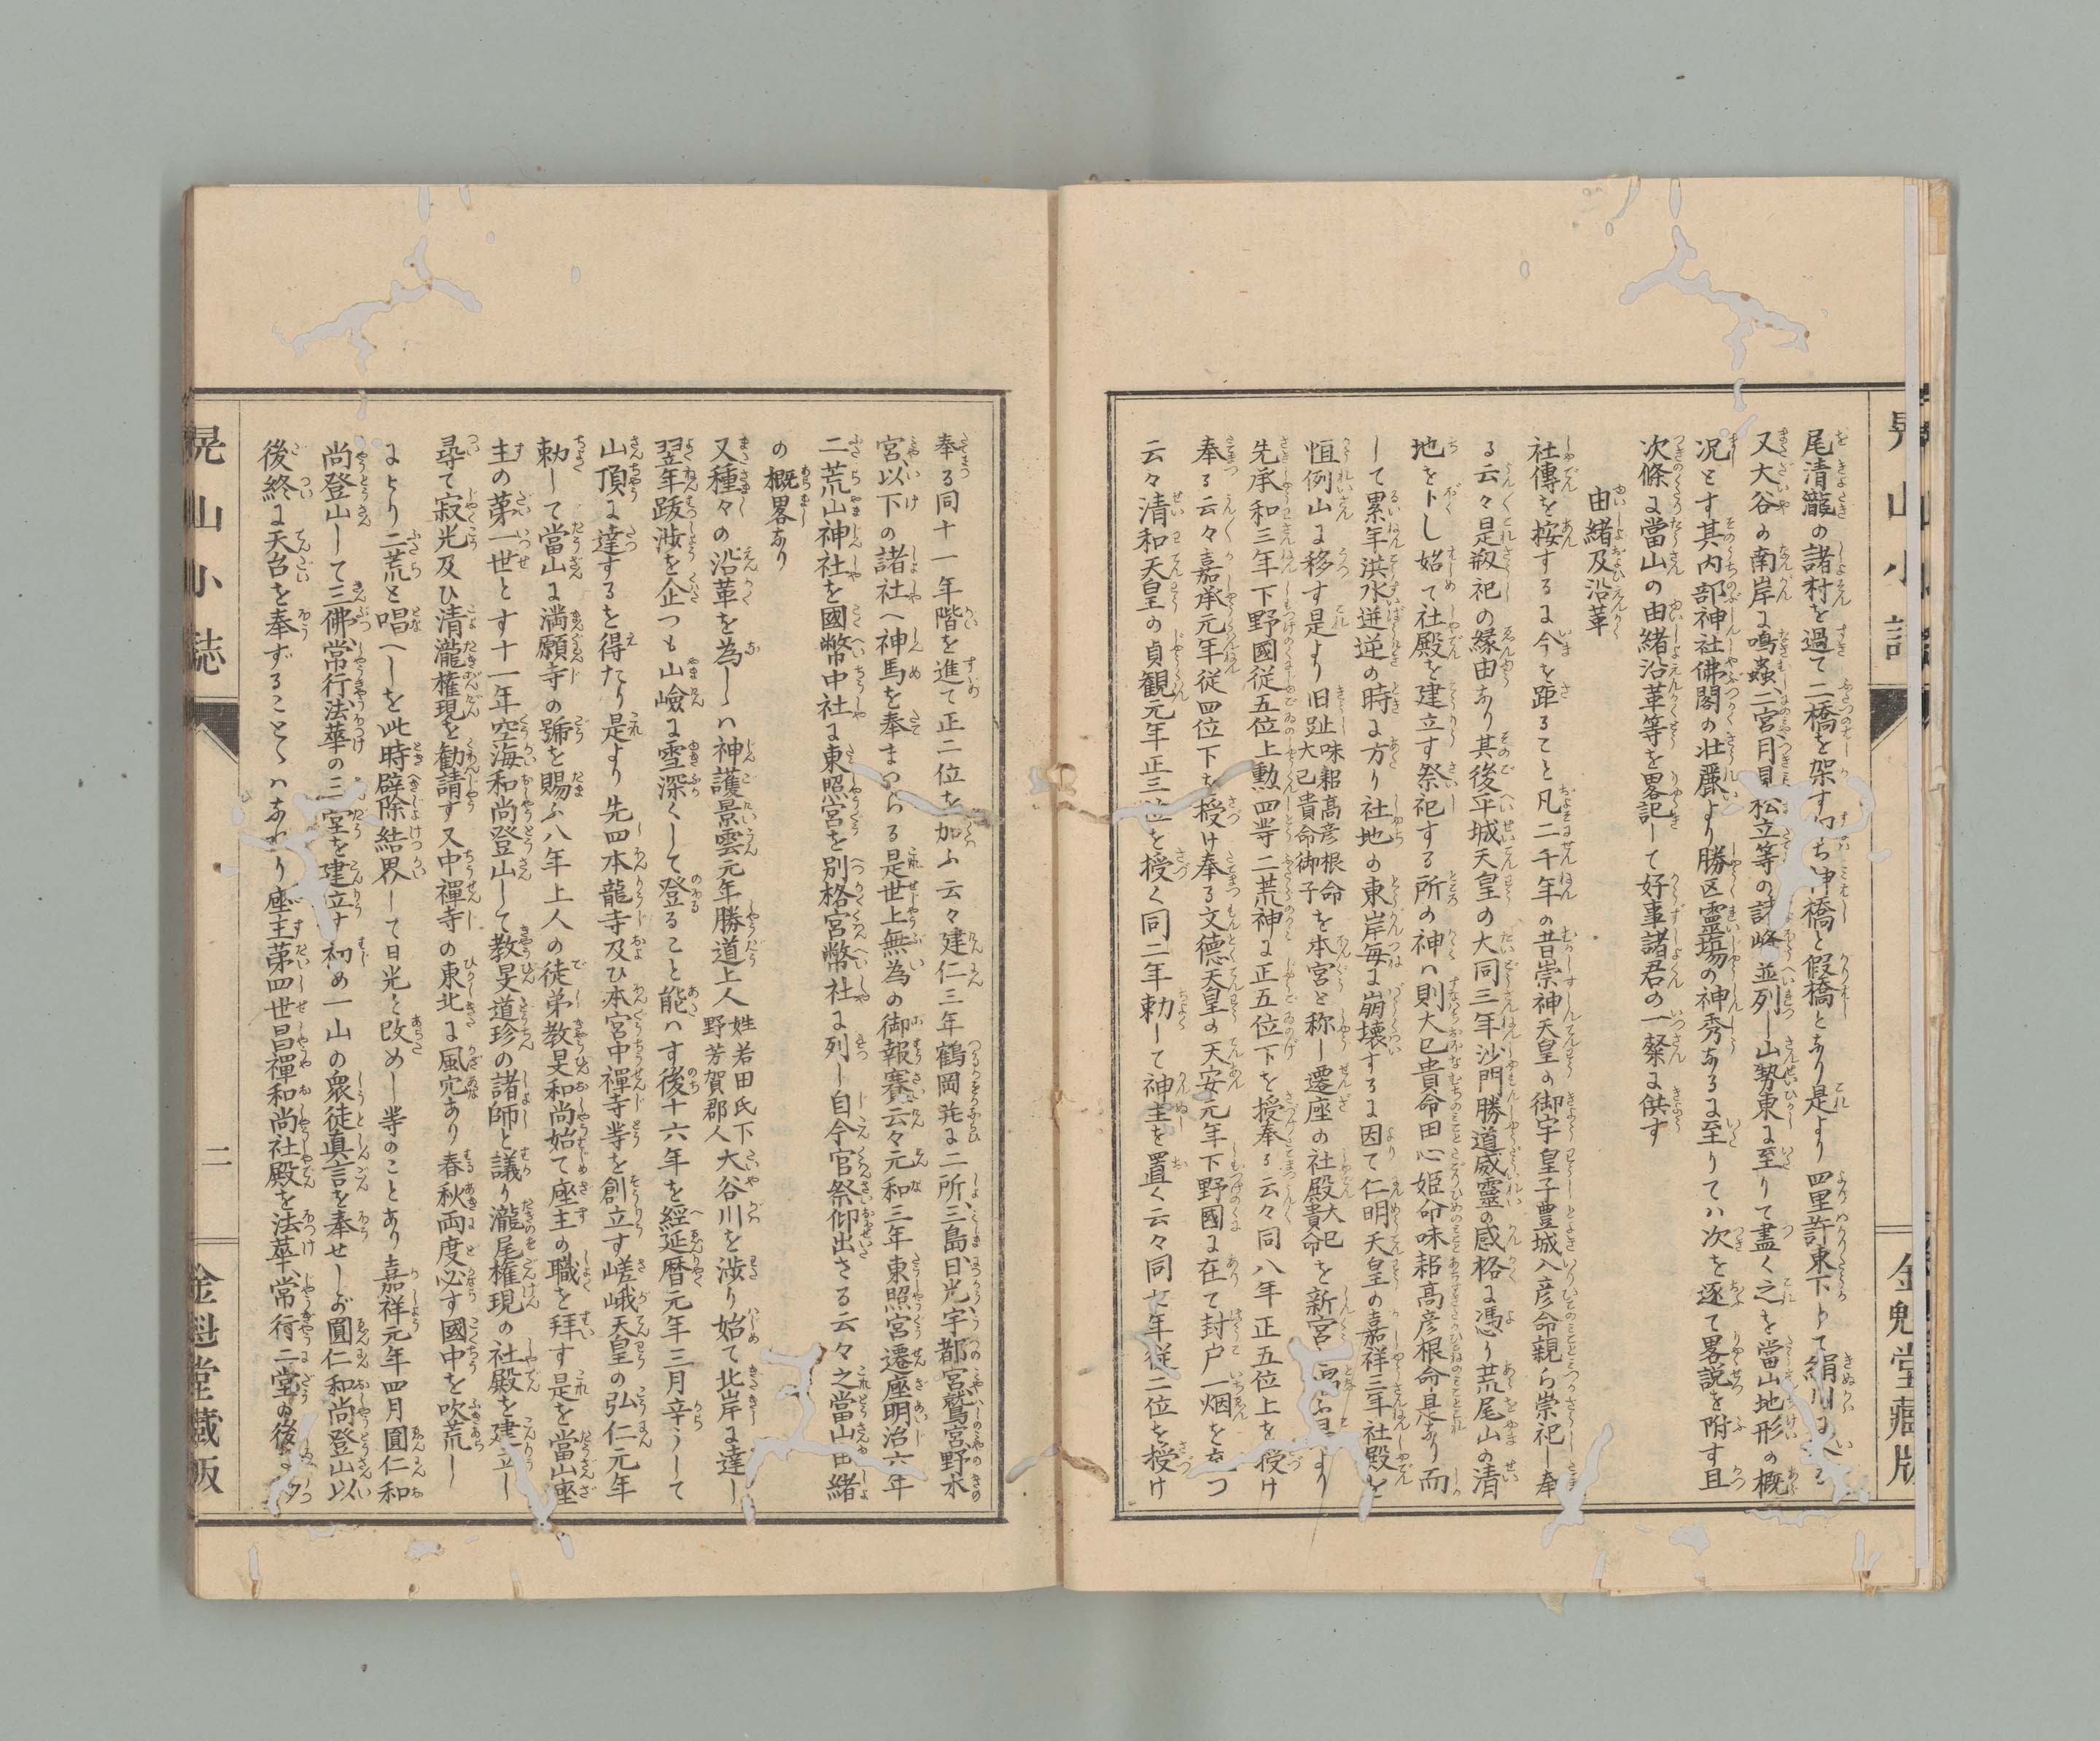 尾清瀧の諸村を過て二橋を架す 橋と假橋とあり是より四里許東下して絹川
又大谷の南岸に鳴蟲、二宮、月見、松立等の諸峰並列し山勢東に至りて盡く之を當山地形の概
況とす其内部神社佛閣の壮嚴より勝区靈場の神秀あるに至りてハ次を逐て畧説を附す且
次條に當山の由緒沿革等を畧記して好事諸君の一粲に供す
由緒及沿革
社傳を按するに今を距ること凡二千年の昔崇神天皇の御宇皇子豊城入彦命親ら崇祀し奉
る云々是剏祀の縁由あり其後平城天皇の大同三年沙門勝道威靈の感格に憑り荒尾山の清
地を卜し始て社殿を建立す祭祀する所の神ハ則大已貴命田心姫命味耜高彦根命是あり而
して累年洪水逆迸の時に方り社地の東岸毎に崩壊するに因て仁明天皇の嘉祥三年社殿を
恒例山に移す是より旧趾味耜高彦根命大已貴命御子を本宮と称し遷座の社殿大已貴命を新宮
先承和三年下野國従五位上勲四等二荒神に正五位下を授奉る云々同八年正五位上を授け
奉る云々嘉承元年従四位下を授け奉る文德天皇の天安元年下野國に在て封戸一烟を
云々清和天皇の貞観元年正三位を授く同二年勅して神主を置く云々同 年従二位を授け
奉る同十一年階を進て正二位を加ふ云々建仁三年鶴岡并に二所、三島、日光、宇都宮、鷲宮、野木
宮、以下の諸社へ神馬を奉まいらる是世上無為の御報賽云々元和三年東照宮遷座明治六年
二荒山神社を國幣中社に東照宮を別格官幣社に列し自今官祭仰出さる云々之當山由緒
の概畧あり
又種々の沿革を為しゝハ神護景雲元年勝道上人姓若田氏下野芳賀郡人大谷川を渉り始て北岸に達し
翌年跋渉を企つも山嶮に雪深くして登ること能ハす後十六年を経延暦元年三月辛うして
山頂に達するを得たり是より先四本龍寺及ひ本宮中禪寺等を創立す嵯峨天皇の弘仁元年
勅して當山に満願寺の號を賜ふ八年上人の徒弟教旻和尚始て座主の職を拜す是を當山座
主の第一世とす十一年空海和尚登山して教旻道珍の諸師と議り瀧尾権現の社殿を建立し
尋て寂光及ひ清瀧権現を勧請す又中禪寺の東北に風穴あり春秋両度必す國中を吹荒し
により二荒と唱へしを此時辟除結界して日光と改めし等のことあり嘉祥元年四月圓仁和
尚登山して三佛、常行、法華の三堂を建立す初め一山の衆徒眞言を奉せしが圓仁和尚登山以
後終に天台を奉ずることゝハあれり座主第四世昌禪和尚社殿を法華、常行二堂の後
晃山小誌
二
金魁堂藏版